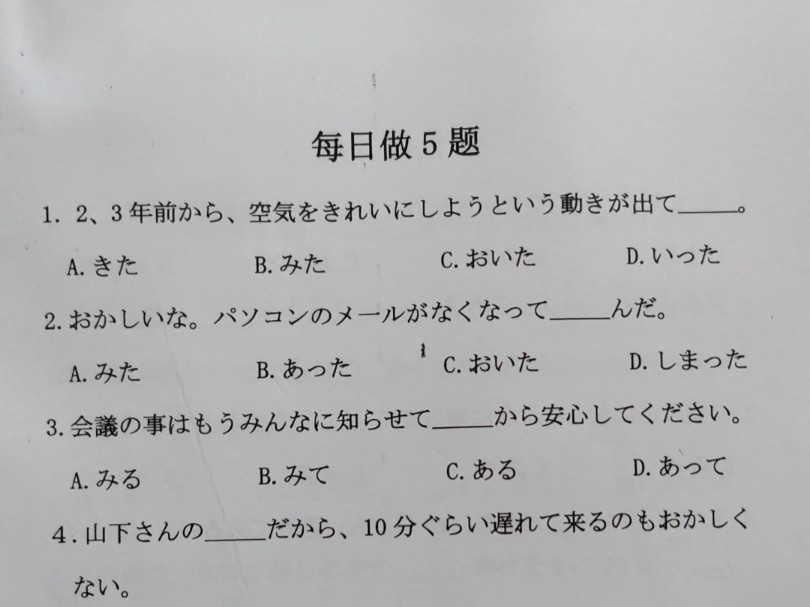 每日做5题
1. 2、3年前から、空気をきれいにしようという動きが出て_____。
A.きた B.みた C.おいた D.いった
2.おかしいな。パソコンのメールがなくなって_____んだ。
A.みた B.あった C.おいた D.しまった
3.会議の事はもうみんなに知らせて_____から安心してください。
A.みる B.みて C.ある D.あって
4.山下さんの_____だから、10分ぐらい遅れて来るのもおかしく
ない。